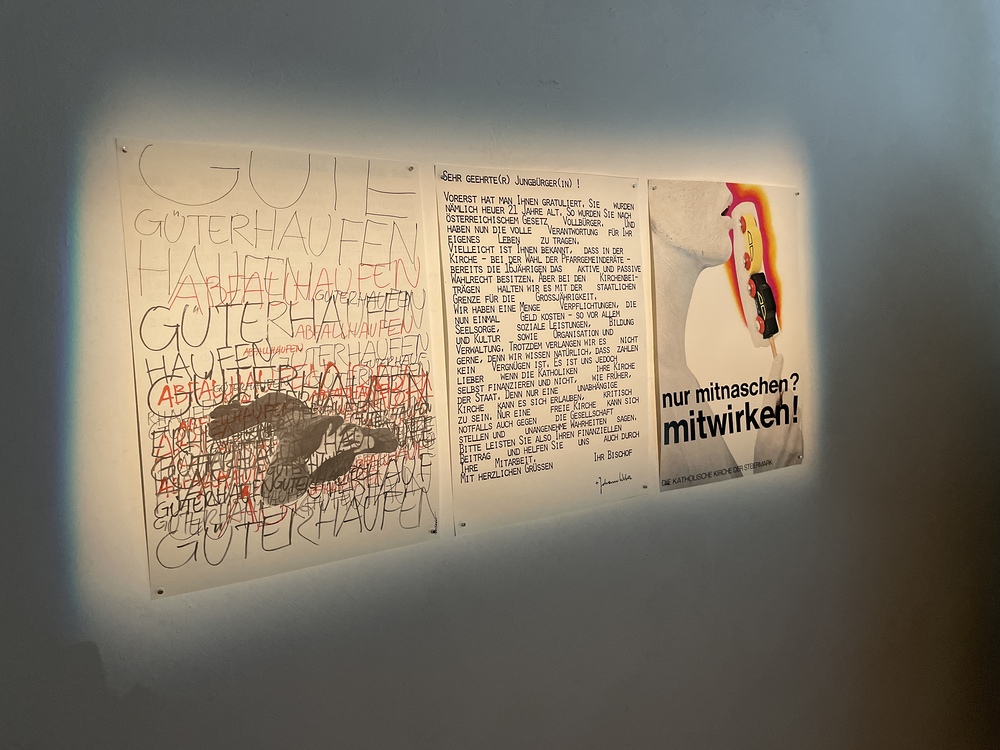 GÜTE
GÜTERHAUFEN
HAUFEN
ABFALLHAUFEN
GÜTERHAUFEN
GÜTERHAUFEN
ABFALLHAUFEN
ABFALLHAUFEN
HAUFEN GÜTERHAUFEN
GÜTERHAUFEN
SEHR GEEHRTE(R) JUNGBÜRGER(IN) !
VORERST HAT MAN IHNEN GRATULIERT. SIE WURDEN
NÄMLICH HEUER 21 JAHRE ALT. SO WURDEN SIE NACH
ÖSTERREICHISCHEM GESETZ VOLLBÜRGER, UND
HABEN NUN DIE VOLLE VERANTWORTUNG FÜR IHR
EIGENES LEBEN ZU TRAGEN.
VIELLEICHT IST IHNEN BEKANNT, DASS IN DER
KIRCHE - BEI DER WAHL DER PFARRGEMEINDERÄTE -
BEREITS DIE 16JÄHRIGEN DAS AKTIVE UND PASSIVE
WAHLRECHT BESITZEN. ABER BEI DEN KIRCHENBEI-
TRÄGEN HALTEN WIR ES MIT DER STAATLICHEN
GRENZE FÜR DIE GROSSJÄHRIGKEIT.
WIR HABEN EINE MENGE VERPFLICHTUNGEN, DIE
NUN EINMAL GELD KOSTEN - SO VOR ALLEM
SEELSORGE, SOZIALE LEISTUNGEN, BILDUNG
UND KULTUR SOWIE ORGANISATION UND
VERWALTUNG. TROTZDEM VERLANGEN WIR ES NICHT
GERNE, DENN WIR WISSEN NATÜRLICH, DASS ZAHLEN
KEIN VERGNÜGEN IST. ES IST UNS JEDOCH
LIEBER WENN DIE KATHOLIKEN IHRE KIRCHE
SELBST FINANZIEREN UND NICHT, WIE FRÜHER,
DER STAAT. DENN NUR EINE UNABHÄNGIGE
KIRCHE KANN ES SICH ERLAUBEN, KRITISCH
ZU SEIN. NUR EINE FREIE KIRCHE KANN SICH
NOTFALLS AUCH GEGEN DIE GESELLSCHAFT
STELLEN UND UNANGENEHME WAHRHEITEN SAGEN.
BITTE LEISTEN SIE ALSO IHREN FINANZIELLEN
BEITRAG UND HELFEN SIE UNS AUCH DURCH
IHRE MITARBEIT.
MIT HERZLICHEN GRÜSSEN IHR BISCHOF
nur mitnaschen?
mitwirken!
DIE KATHOLISCHE KIRCHE DER STEIERMARK